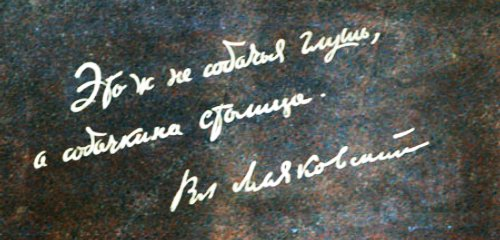 Это ж не собачья глушь,
а собачкина столица.
Вл Маяковский